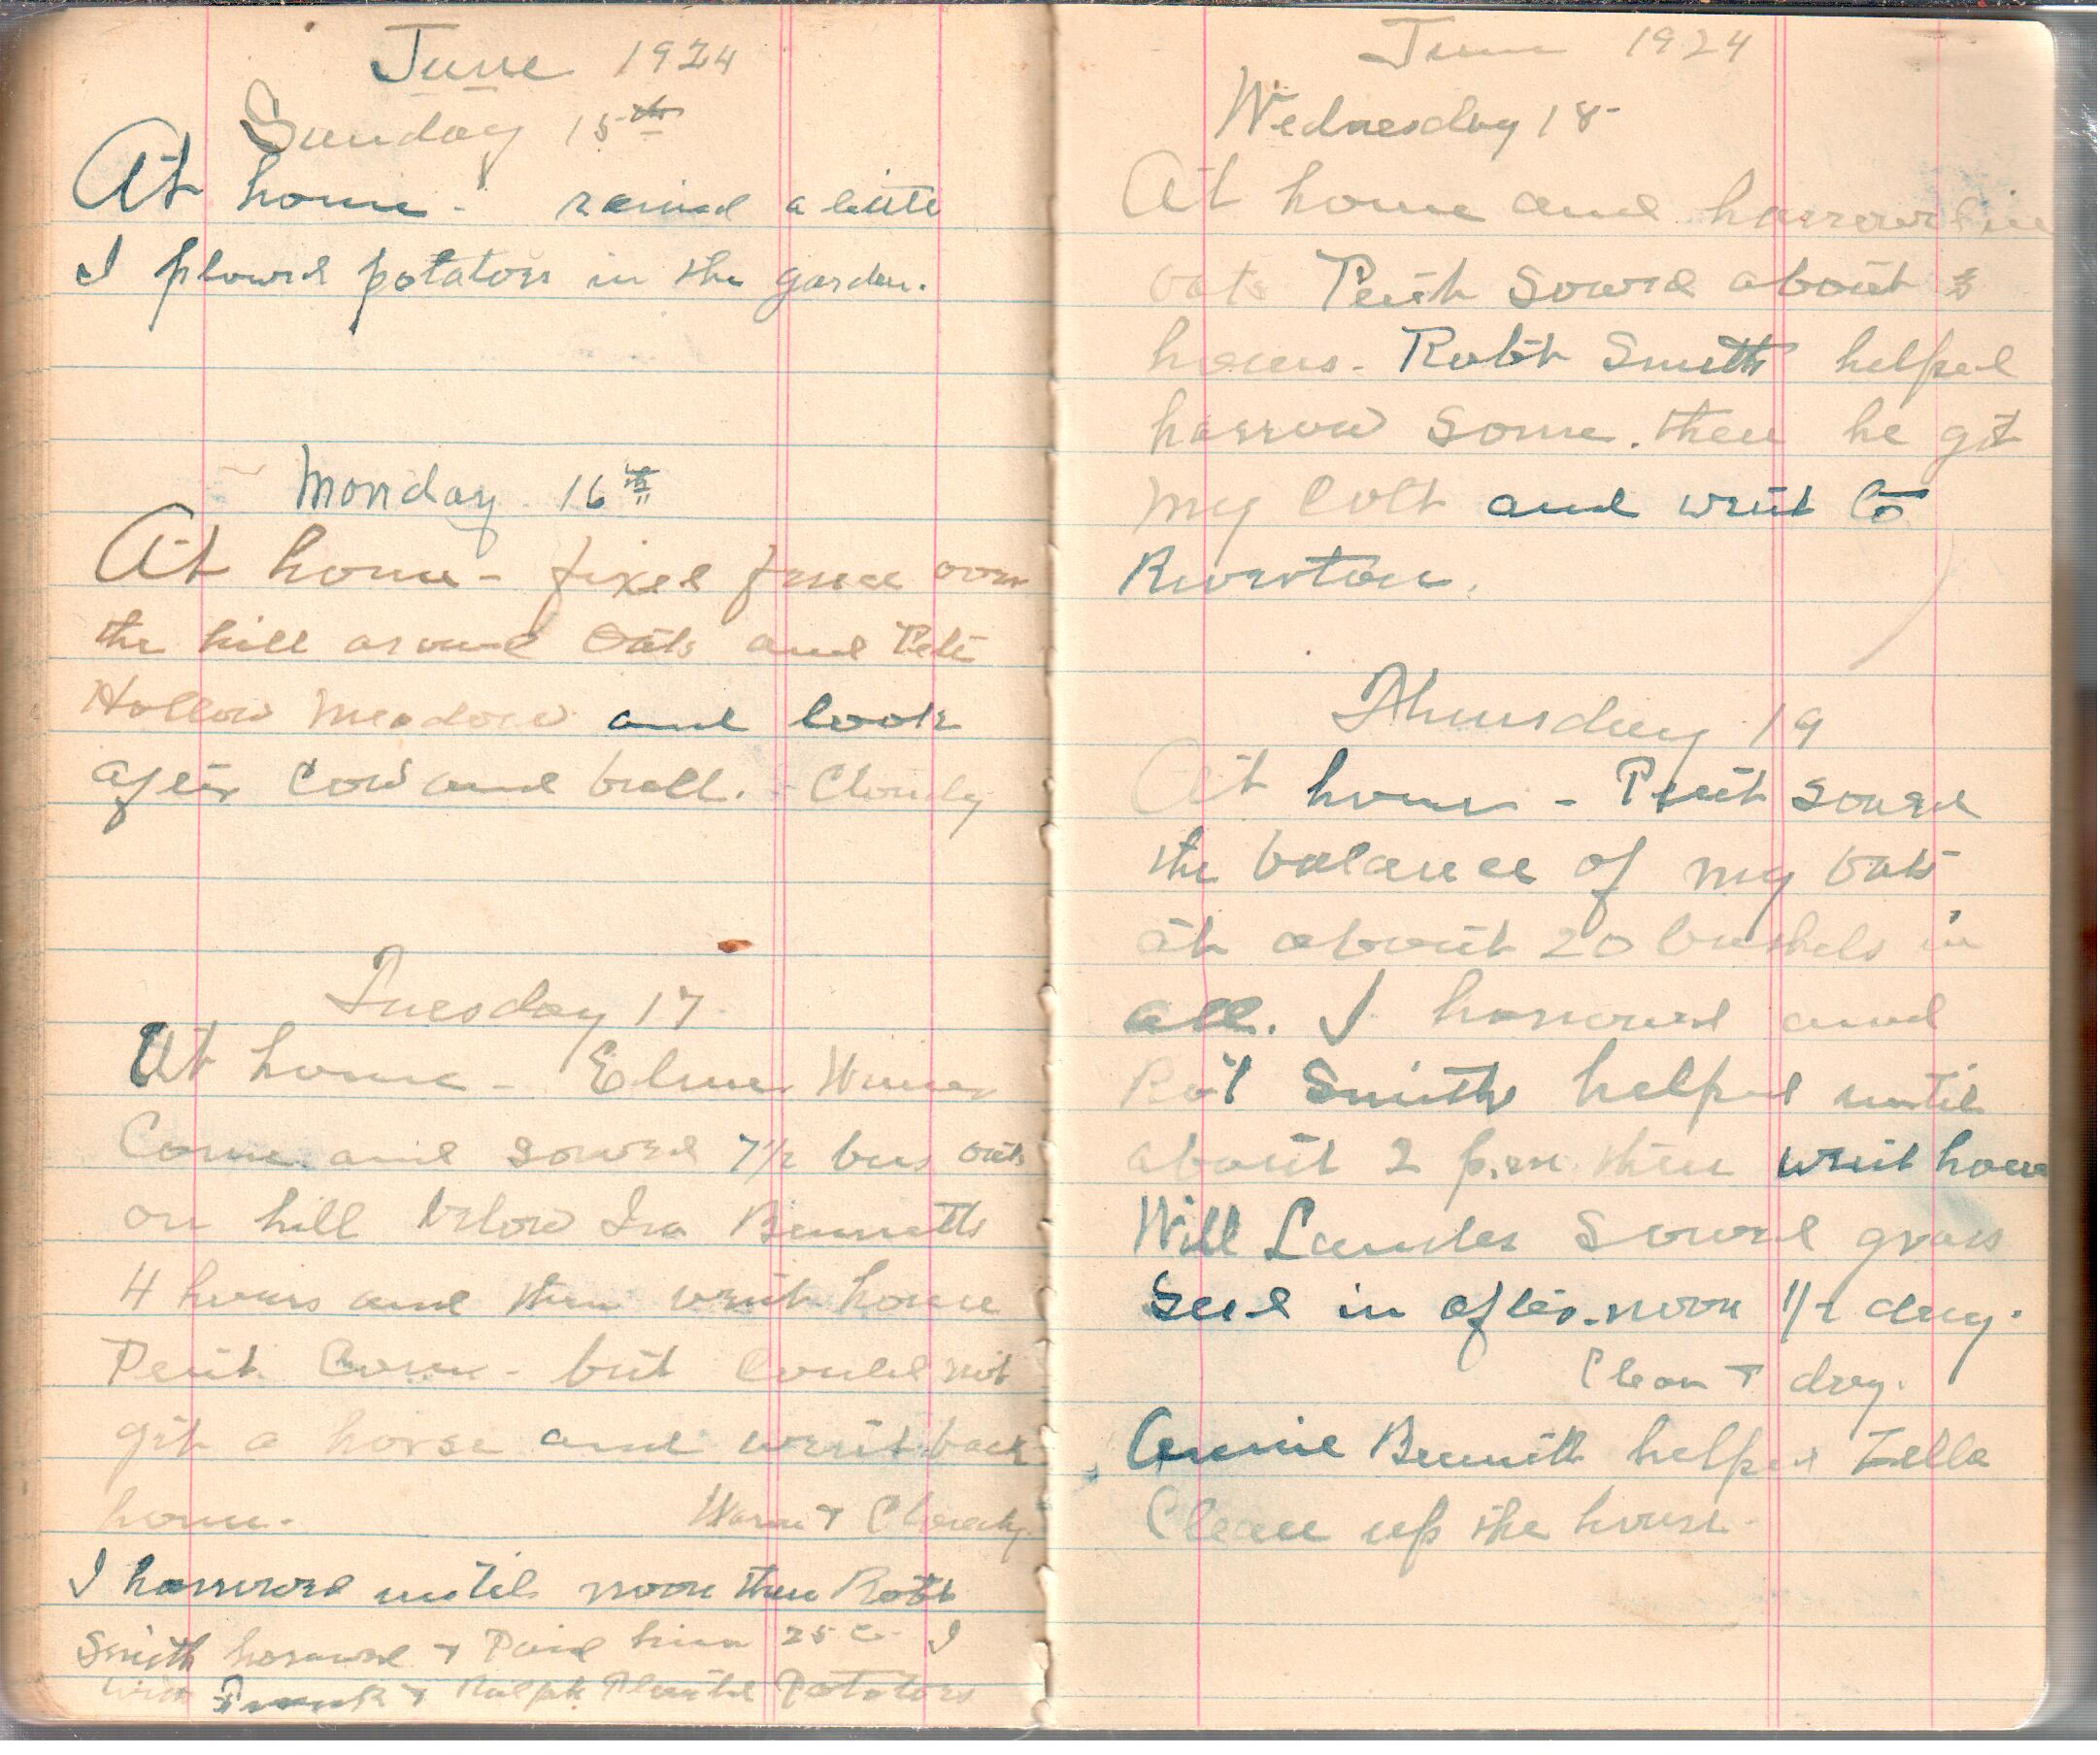 June 1924
Sunday 15th
At home - rained a little
I plowed potatoes in the garden.
Monday 16th
At home - fixed fence over
the hill around Oats and Pete
Hollow Meadow and look
after Cow and bull. - Cloudy
Tuesday 17
At home - Elmer
Come and sowed 7 1/2 bus oats
on hill below Ira Bennetts
4 hours and then went home
Come - but Could not
git a horse and went back
home. Warm & Cloudy
I harrowed until noon then Robt
Smith harrowed & Paid him 25 c. I
with Frank & Ralph Planted Potatoes
June 1924
Wednesday 18-
At home and harrowed in
oats sowed about
hours. Robt Smith helped
harrow some. then he got
my Colt and went to
Riverton.
Thursday 19
At home - sowed
the balance of my oats
at about 20 bushels in
all. I harrowed and
Robt Smith helped until
about 2 p.m. then went home
Will Lander sowed grass
seed in after-noon 1/2 day.
Clear & dry.
Annie Bennett helped Zella
Clean up the house.